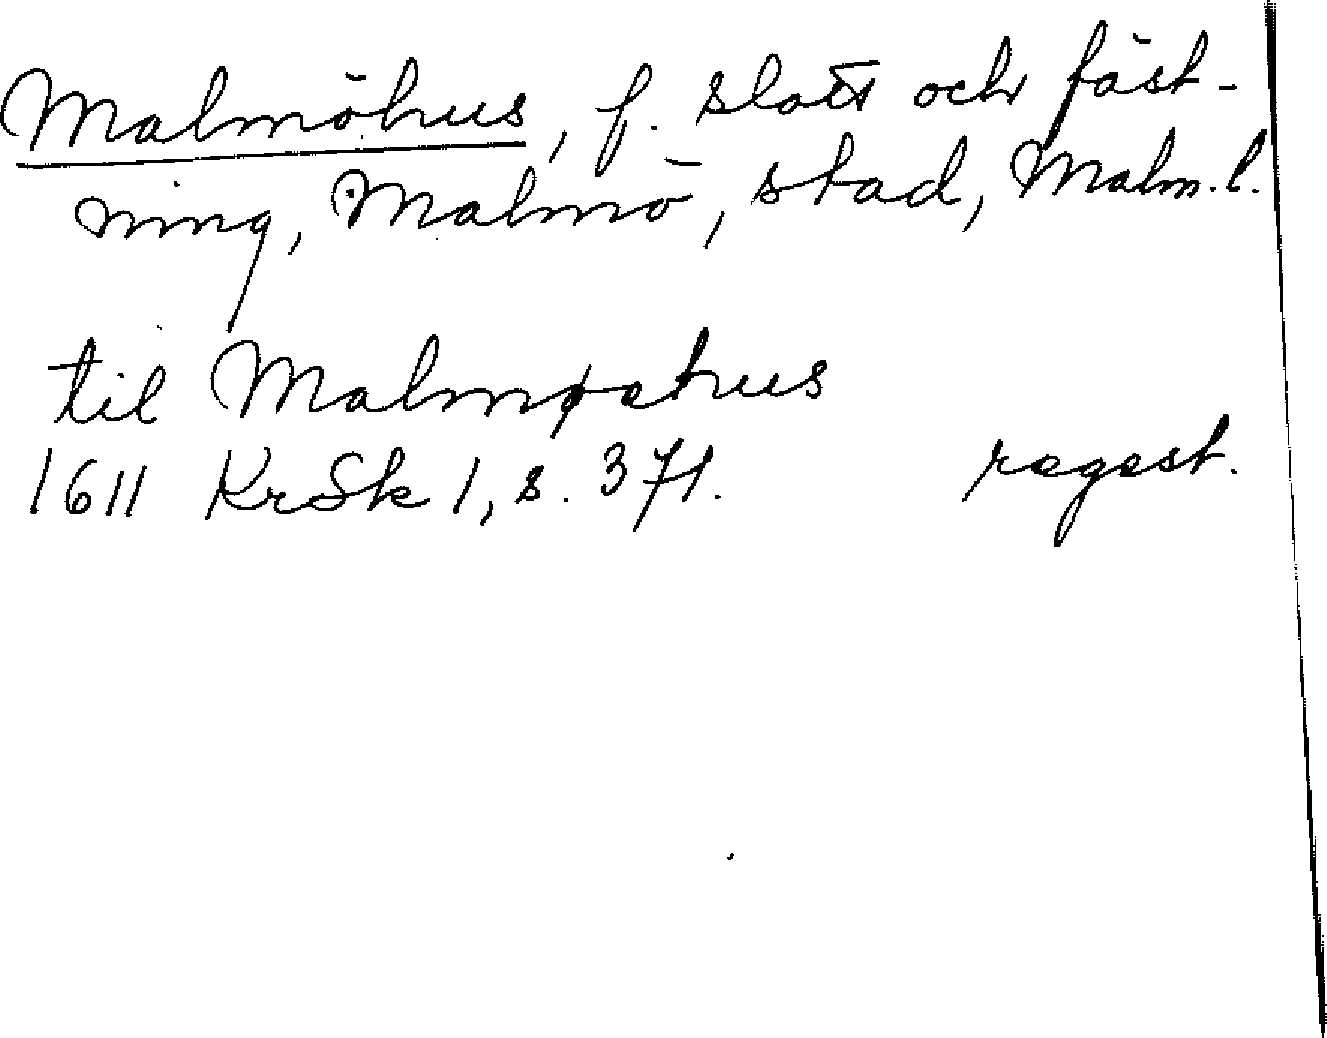 Malmöhus, f. slott och fäst-
ning, Malmö, stad, Malm. l.
til Malmøehus
1611 KrSk 1, s. 371. regest.